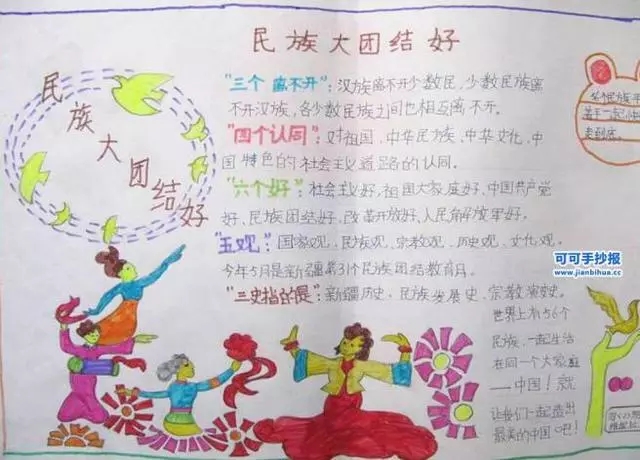 民族大团结好
民族大团结好
"三个离不开":汉族离不开少数民,少数民族离
不开汉族,各少数民族之间也相互离不开。
"四个认同":对祖国,中华民族,中华文化,中
国特色的社会主义道路的认同。
"六个好":社会主义好,祖国大家庭好、中国共产党
好、民族团结好,改革开放好,人民解放军好。
"五观":国家观、民族观、宗教观、历史观、文化观。
今年5月是新疆第31个民族团结教育月。
"三史指的是":新疆历史、民族发展史、宗教演变史。
世界上有56个
民族,一起生活
在同一个大家庭
——中国!就
让我们一起造出
最美的中国吧!
各个民族
走到底。
可可手抄报
www.jianbihua.cc